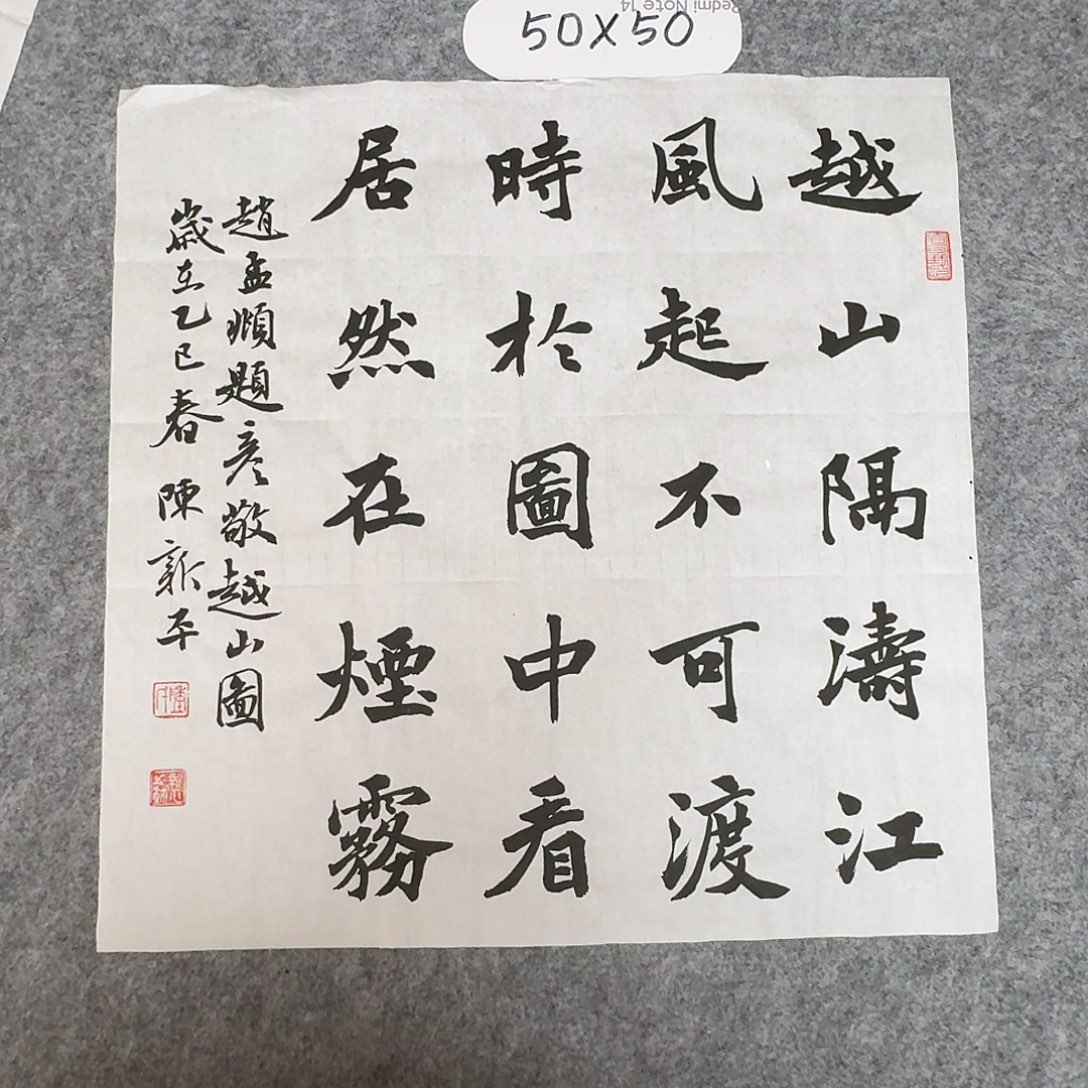 50X50
Redmi Note 14
越山隔濤江
風起不可渡
時於圖中看
居然在煙霧
趙孟頫題彥敬越山圖
歲在乙巳春 陳新平